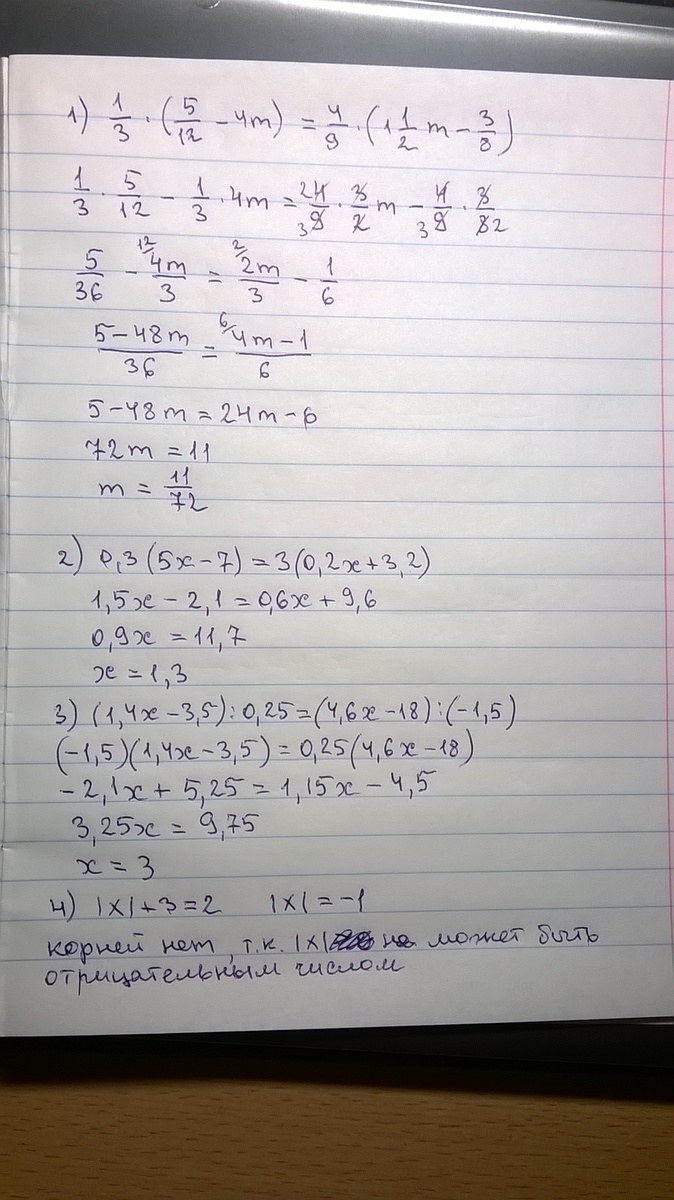 1) 1/3 · (5/12 − 4m) = 4/9 · (1 1/2 m − 3/8)
1/3 · 5/12 − 1/3 · 4m = 4/9 · 3/2 m − 4/9 · 3/8
5/36 − 4m/3 = 2m/3 − 1/6
(5 − 48m)/36 = (4m − 1)/6
5 − 48m = 24m − 6
72m = 11
m = 11/72
2) 0,3 (5x − 7) = 3(0,2x + 3,2)
1,5x − 2,1 = 0,6x + 9,6
0,9x = 11,7
x = 1,3
3) (1,4x − 3,5) : 0,25 = (4,6x − 18) : (−1,5)
(−1,5)(1,4x − 3,5) = 0,25(4,6x − 18)
−2,1x + 5,25 = 1,15x − 4,5
3,25x = 9,75
x = 3
4) |x| + 3 = 2 |x| = −1
корней нет, т.к. |x| не может быть
отрицательным числом